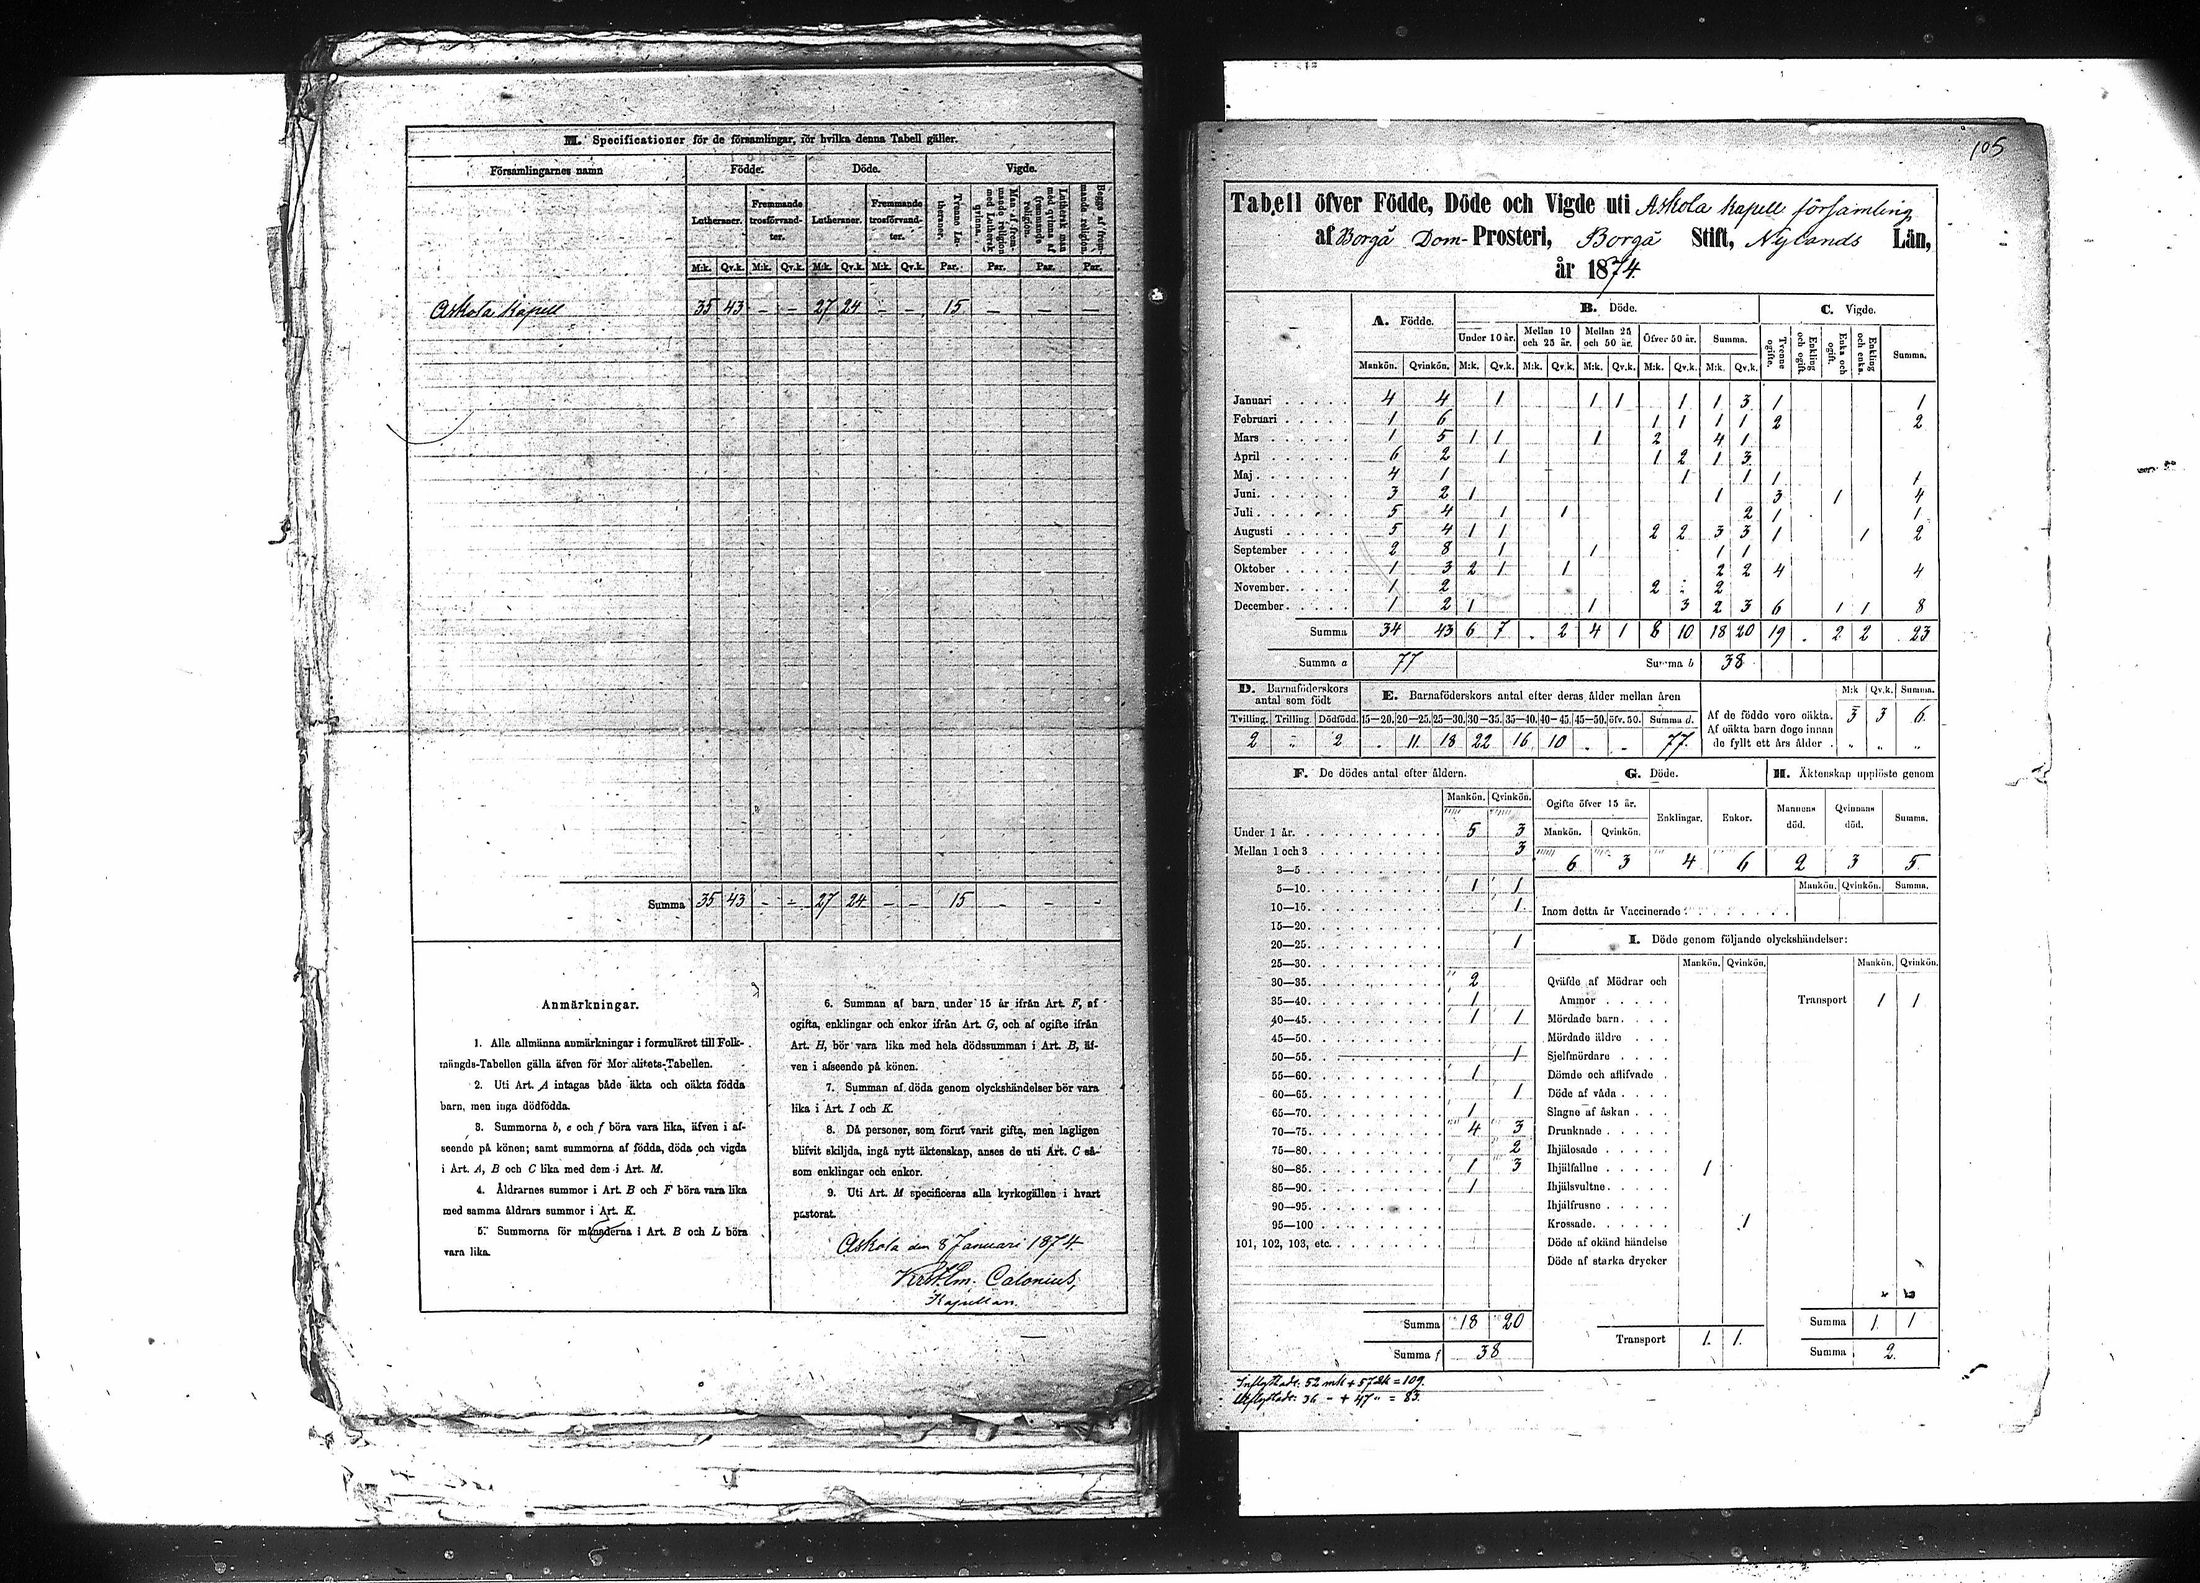 M. Specificationer för de församlingar, för hvilka denna Tabell gäller.
Församlingarnes namn Födde. Döde. Vigde.
Lutheraner. Fremmande trosförvandter. Lutheraner. Fremmande trosförvandter. Tvenne Lutheraner. Man af fremmande religion med Luthersk qvinna. Luthersk man med qvinna af fremmande religion. Begge af fremmande religion
M:k. Qv.k. M:k. Qv.k. M:k. Qv.k. M:k. Qv.k. Par. Par. Par. Par.
Askola Kapell 35 43 – – 27 24 – – 15 – – –
Summa 35 43 – – 27 24 – – 15 – – –
Anmärkningar.
1. Alla allmänna anmärkningar i formuläret till Folk-
mängds-Tabellen gälla äfven för Mortalitets-Tabellen.
2. Uti Art. A intagas både äkta och oäkta födda
barn, men inga dödfödda.
3. Summorna b, e och f böra vara lika, äfven i af-
seende på könen; samt summorna af födda, döda och vigda
i Art. A, B och C lika med dem i Art. M.
4. Åldrarnes summor i Art. B och F böra vara lika
med samma åldrars summor i Art. K.
5. Summorna för månaderna i Art. B och L böra
vara lika.
6. Summan af barn under 15 år ifrån Art. F, af
ogifta, enklingar och enkor ifrån Art. G, och af ogifte ifrån
Art. H, bör vara lika med hela dödssumman i Art. B, äf-
ven i afseende på könen.
7. Summan af döda genom olyckshändelser bör vara
lika i Art. I och K.
8. Då personer, som förut varit gifta, men lagligen
blifvit skiljda, ingå nytt äktenskap, anses de uti Art. C så-
som enklingar och enkor.
9. Uti Art. M specificeras alla kyrkogällen i hvart
pastorat.
Askola den 8 Januari 1874.
Calonius,
Kapellan.
105
Tabell öfver Födde, Döde och Vigde uti Askola kapell församling
af Borgå Dom-Prosteri, Borgå Stift, Nylands Län,
år 1874.
A. Födde. B. Döde. C. Vigde.
Under 10 år. Mellan 10 och 25 år. Mellan 25 och 50 år. Öfver 50 år. Summa. Tvenne ogifte. Enkling och ogift. Enka och ogift. Enkling och enka. Summa.
Mankön. Qvinkön. M:k. Qv.k. M:k. Qv.k. M:k. Qv.k. M:k. Qv.k. M:k. Qv.k.
Januari 4 4 1 1 1 1 1 3 1 1
Februari 1 6 1 1 1 1 2 2
Mars 1 5 1 1 1 2 4 1
April 6 2 1 1 2 1 3
Maj 4 1 1 1 1 1
Juni 3 2 1 1 3 1 4
Juli 5 4 1 1 2 1 1
Augusti 5 4 1 1 2 2 3 3 1 1 2
September 2 8 1 1 1 1
Oktober 1 3 2 1 1 2 2 4 4
November 1 2 2 2
December 1 2 1 1 3 2 3 6 1 1 8
Summa 34 43 6 7 . 2 4 1 8 10 18 20 19 . 2 2 23
Summa a 77 Summa b 38
D. Barnaföderskors antal som födt E. Barnaföderskors antal efter deras ålder mellan åren M:k Qv.k. Summa.
Tvilling. Trilling. Dödfödd. 15—20. 20—25. 25—30. 30—35. 35—40. 40—45. 45—50. öfv. 50. Summa d.
2 2 11 18 22 16 10 77.
Af de födde voro oäkta. 3 3 6
Af oäkta barn dogo innan
de fyllt ett års ålder
F. De dödes antal efter åldern. G. Döde. H. Äktenskap upplöste genom
Mankön. Qvinkön. Ogifte öfver 15 år. Mankön. Qvinkön. Enklingar. Enkor. Mannens död. Qvinnans död. Summa.
6 3 4 6 2 3 5
Mankön. Qvinkön. Summa.
Inom detta år Vaccinerade
Under 1 år. 5 3
Mellan 1 och 3 3
3—5
5—10. 1 1
10—15. 1
15—20.
20—25. 1
25—30.
30—35. 2
35—40. 1
40—45. 1 1
45—50.
50—55. 1
55—60. 1
60—65. 1
65—70. 1
70—75. 4 3
75—80. 2
80—85. 1 3
85—90. 1
90—95.
95—100
101, 102, 103, etc.
Summa 18 20
Summa f 38
I. Döde genom följande olyckshändelser:
Mankön. Qvinkön. Mankön. Qvinkön.
Qväfde af Mödrar och
Ammor Transport 1 1
Mördade barn
Mördade äldre
Sjelfmördare
Dömde och aflifvade
Döde af våda
Slagne af åskan
Drunknade
Ihjälosade
Ihjälfallne 1
Ihjälsvultne
Ihjälfrusne
Krossade 1
Döde af okänd händelse
Döde af starka drycker
Transport 1. 1. Summa 1 1
Summa 2.
Inflyttade: 52 mk + 57 Qk = 109.
Utflyttade: 36 " + 47 " = 83.